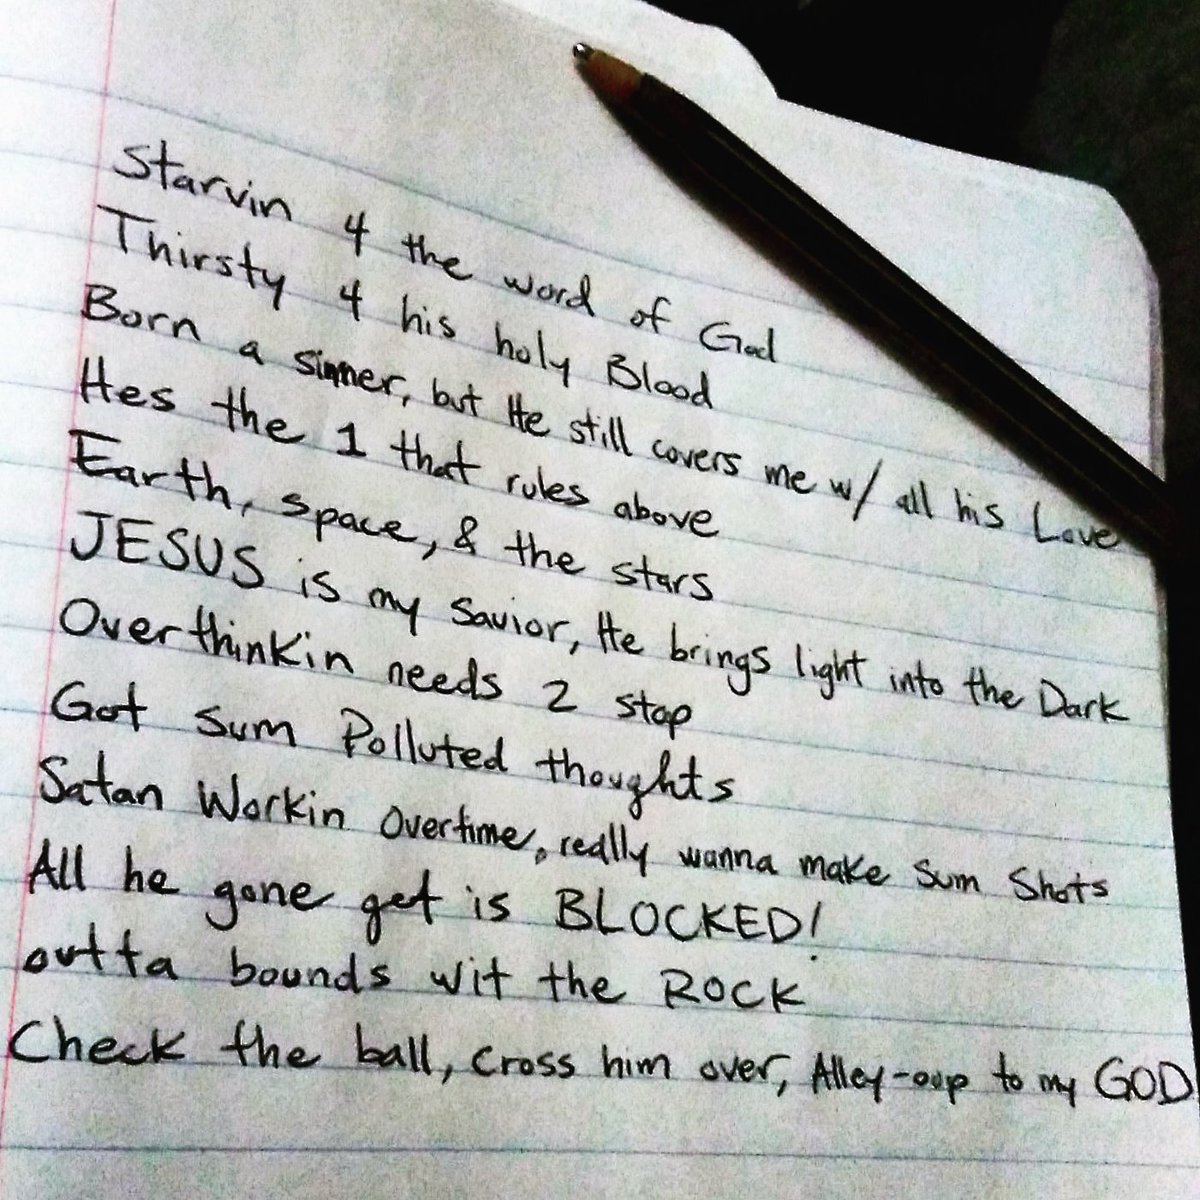 Starvin 4 the word of God
Thirsty 4 his holy Blood
Born a sinner, but He still covers me w/ all his Love
Hes the 1 that rules above
Earth, space, & the stars
JESUS is my savior, He brings light into the Dark
Overthinkin needs 2 stop
Got sum Polluted thoughts
Satan Workin Overtime, really wanna make sum shots
All he gone get is BLOCKED!
outta bounds wit the ROCK
Check the ball, cross him over, Alley-oop to my GOD